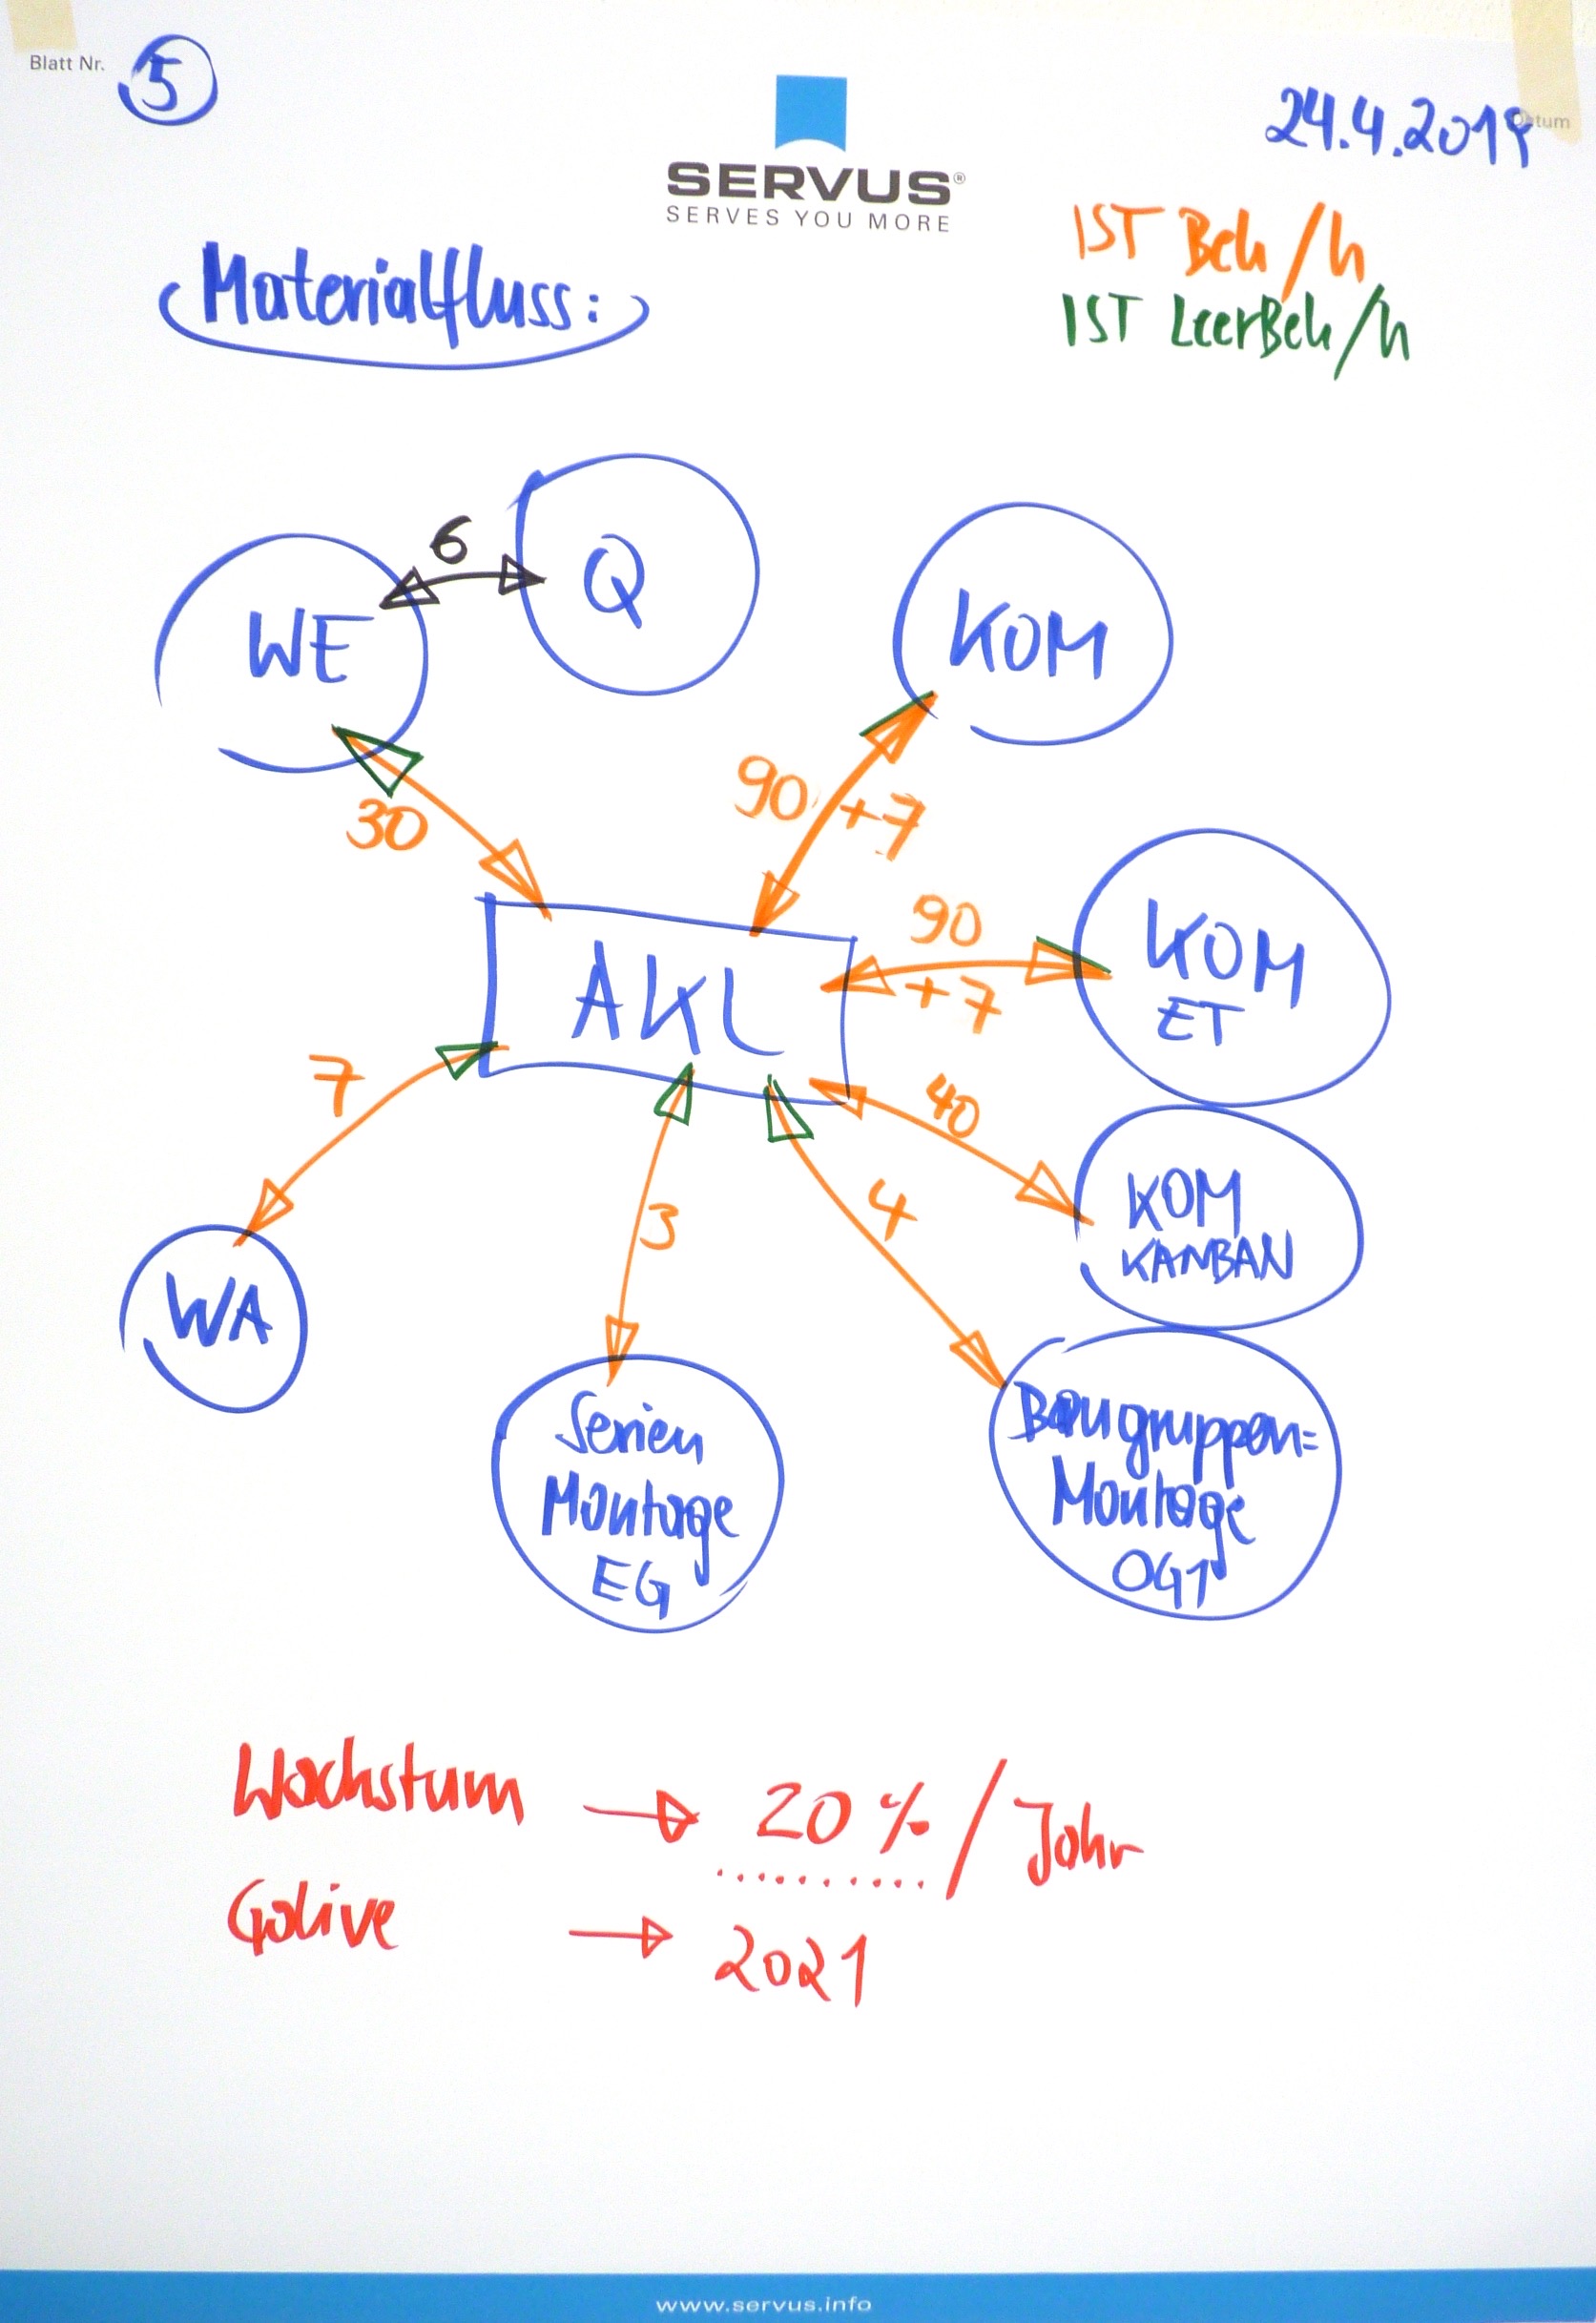 Blatt Nr. 5
Datum
24.4.2019
SERVUS®
SERVES YOU MORE
IST Beh/h
IST LeerBeh/h
Materialfluss:
6
Q
WE
KOM
30
90 +7
AKL
90
+7
KOM
ET
7
40
KOM
KANBAN
3
4
WA
Serien
Montage
EG
Baugruppen=
Montage
OG1
Wachstum → 20%/Jahr
Golive → 2021
www.servus.info